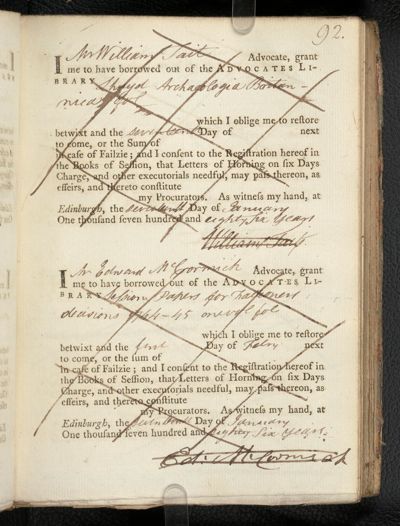 92.
I Mr William Tait Advocate, grant
me to have borrowed out of the ADVOCATES LI-
BRARY Lhuyd Archæologia Britan-
nica
which I oblige me to reſtore
betwixt and the seventeenth Day of next
to come, or the Sum of
in caſe of Failzie; and I conſent to the Regiſtration hereof in
the Books of Seſſion, that Letters of Horning on ſix Days
Charge, and other executorials needful, may paſs thereon, as
effeirs, and thereto conſtitute
my Procurators. As witneſs my hand, at
Edinburgh, the seventeenth Day of January
One thouſand ſeven hundred and eighty six Years
William Tait
I Mr Edward McCormick Advocate, grant
me to have borrowed out of the ADVOCATES LI-
BRARY Session Papers for Falconers
decisions 1744-45 one vol fol
which I oblige me to reſtore
betwixt and the first Day of Febry next
to come, or the ſum of
in caſe of Failzie; and I conſent to the Regiſtration hereof in
the Books of Seſſion, that Letters of Horning on ſix Days
Charge, and other executorials needful, may paſs thereon, as
effeirs, and thereto conſtitute
my Procurators. As witneſs my hand, at
Edinburgh, the Day of January
One thouſand ſeven hundred and eighty Six Years.
Ed. McCormick